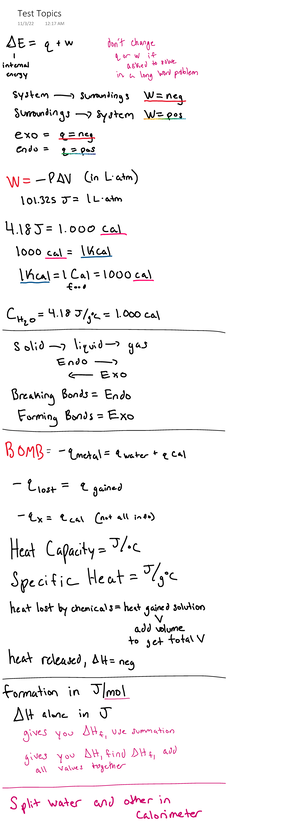 Test Topics
11/3/22 12:17 AM
ΔE = q + w
internal energy
don't change
q or w if
asked to solve
in a long word problem
System → Surroundings W = neg
Surroundings → System W = pos
exo = q = neg
endo = q = pos
W = -PΔV (in L·atm)
101.325 J = 1 L·atm
4.18 J = 1.000 cal
1000 cal = 1 Kcal
1 Kcal = 1 Cal = 1000 cal
food
C H₂O = 4.18 J/g°C = 1.000 cal
Solid → liquid → gas
Endo →
← Exo
Breaking Bonds = Endo
Forming Bonds = Exo
BOMB = -q metal = q water + q cal
-q lost = q gained
-q x = q cal (not all info)
Heat Capacity = J/°C
Specific Heat = J/g°C
heat lost by chemicals = heat gained solution
V
add volume
to get total V
heat released, ΔH = neg
formation in J/mol
ΔH alone in J
gives you ΔHf, use summation
gives you ΔH, find ΔHf, add
all values together
Split water and other in
Calorimeter